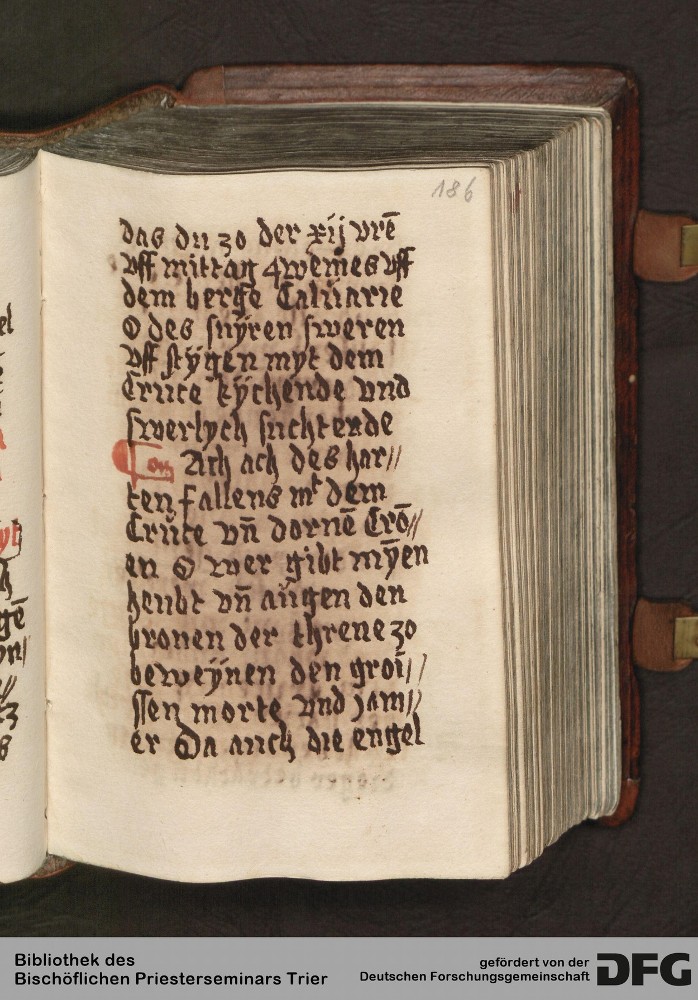 186
das du zo der xij vrē
vff mittag qwemes vff
dem berge Caluarie
O des suÿren sweren
vff stÿgen myt dem
Cruce kÿchende vnd
swerlych suchtende
Com Ach ach des har//
ten fallens mt dem
Cruce vn̄ dornē Crō//
en O wer gibt mÿen
heubt vn̄ augen den
bronen der threne zo
beweÿnen den groi//
ssen morte vnd jam//
er Da auch die engel
Bibliothek des
Bischöflichen Priesterseminars Trier
gefördert von der
Deutschen Forschungsgemeinschaft
DFG